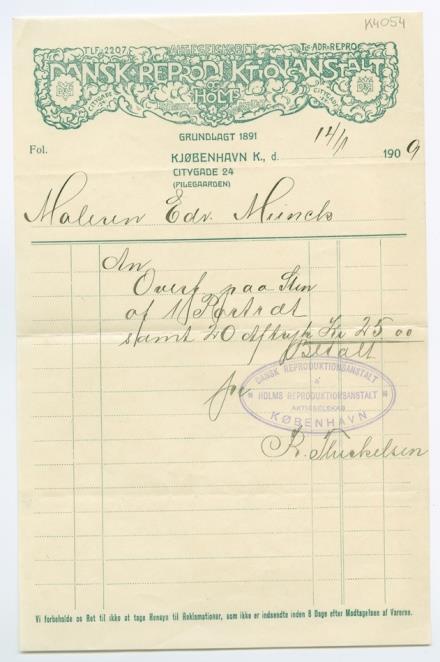 K4054
TLF. 2207. AKTIESELSKABET TLG. ADR. REPRO
DANSK REPRODUKTIONANSTALT
CITYGADE 24 & HOLMS CITYGADE 24
GRUNDLAGT 1891
Fol.
KJØBENHAVN K., d. 14/1 1909
CITYGADE 24
(PILEGAARDEN)
Maleren Edv. Munch
An
Overf. paa Sten
af 1 Portræt
samt 20 Aftryk Kr 25 00
Betalt
for
DANSK REPRODUKTIONSANSTALT
&
HOLMS REPRODUKTIONSANSTALT
AKTIESELSKAB
KØBENHAVN
Vi forbeholde os Ret til ikke at tage Hensyn til Reklamationer, som ikke er indsendte inden 8 Dage efter Modtagelsen af Varerne.